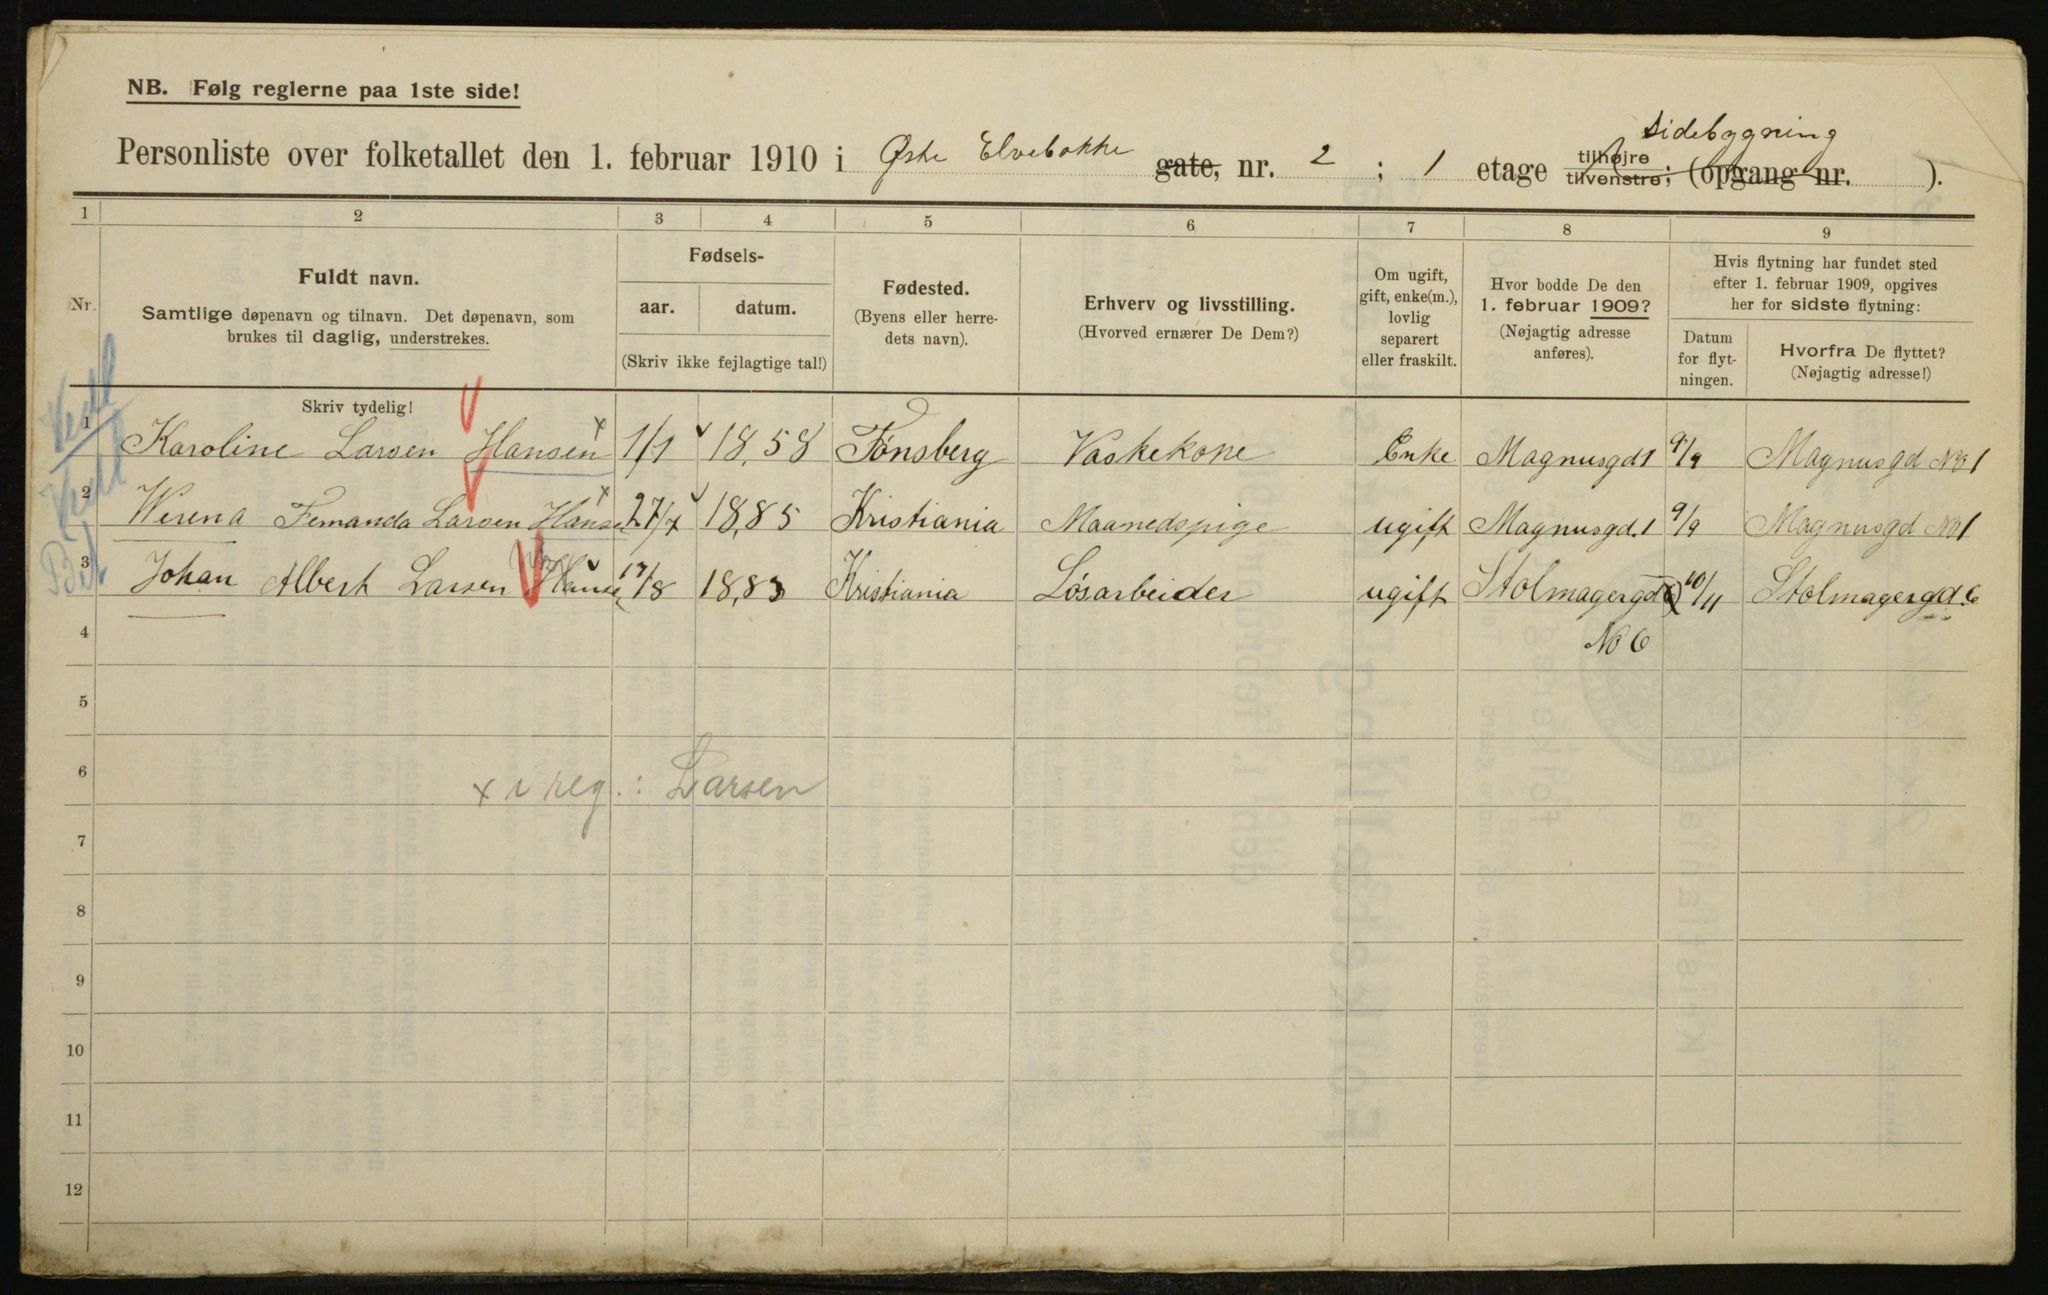 NB. Følg reglerne paa 1ste side!
Sidebygning
Personliste over folketallet den 1. februar 1910 i Østre Elvebakke gate, nr. 2 ; 1 etage tilhøjre tilvenstre; (opgang nr. ).
1 2 3 4 5 6 7 8 9
Nr.
Fuldt navn.
Samtlige døpenavn og tilnavn. Det døpenavn, som
brukes til daglig, understrekes.
Skriv tydelig!
Fødsels-
aar. datum.
(Skriv ikke fejlagtige tal!)
Fødested.
(Byens eller herre-
dets navn).
Erhverv og livsstilling.
(Hvorved ernærer De Dem?)
Om ugift,
gift, enke(m.),
lovlig
separert
eller fraskilt.
Hvor bodde De den
1. februar 1909?
(Nøjagtig adresse
anføres).
Hvis flytning har fundet sted
efter 1. februar 1909, opgives
her for sidste flytning:
Datum
for flyt-
ningen.
Hvorfra De flyttet?
(Nøjagtig adresse!)
1 Karoline Larsen Hansen x 1/1 18,58 Tønsberg Vaskekone Enke Magnusgd 1 9/9 Magnusgd No 1
2 Werena Fernanda Larsen Hansen x 27/7 18,85 Kristiania Maanedspige ugift Magnusgd. 1 9/9 Magnusgd No 1
3 Johan Albert Larsen Hansen 17/8 18,83 Kristiania Løsarbeider ugift Stolmagergd 10/11 Stolmagergd. 6
4 No 6
5
6 x i reg.: Larsen
7
8
9
10
11
12